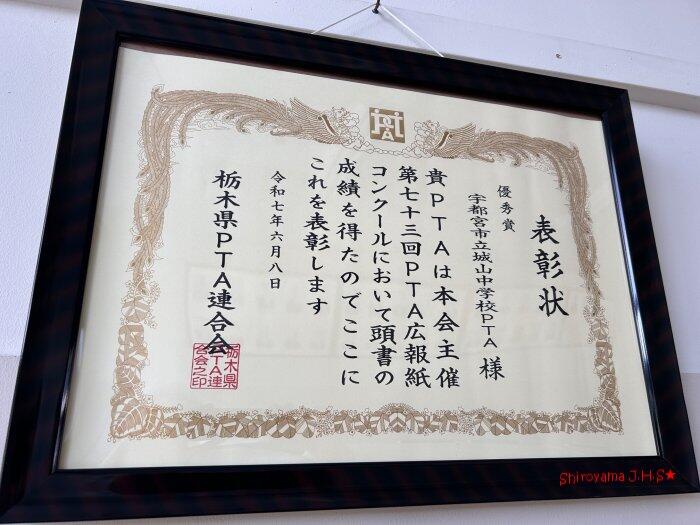 表彰状
優秀賞
宇都宮市立城山中学校PTA 様
貴PTAは本会主催
第七十三回PTA広報紙
コンクールにおいて頭書の
成績を得たのでここに
これを表彰します
令和七年六月八日
栃木県PTA連合会
栃木県
PTA連
合会之印
PTA
Shiroyama J.H.S★